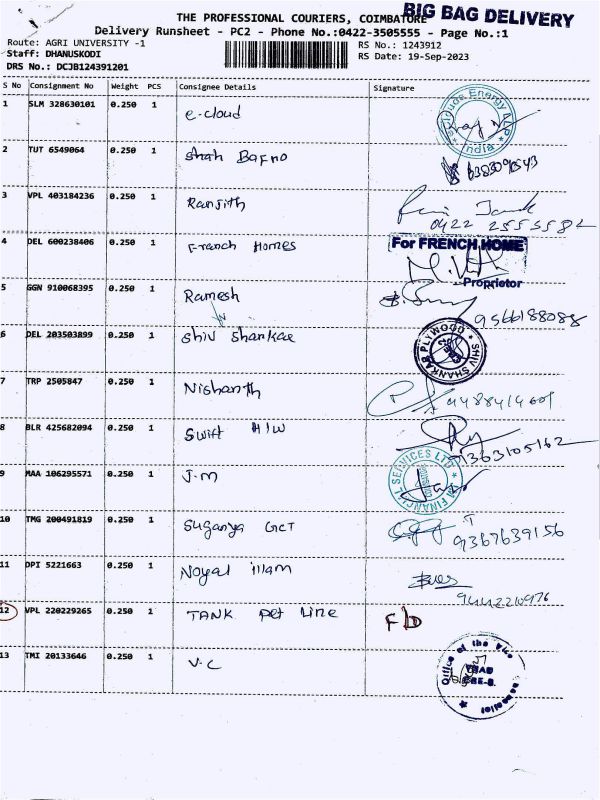 THE PROFESSIONAL COURIERS, COIMBATORE
BIG BAG DELIVERY
Delivery Runsheet - PC2 - Phone No.:0422-3505555 - Page No.:1
Route: AGRI UNIVERSITY -1
RS No.: 1243912
Staff: DHANUSKODI
RS Date: 19-Sep-2023
DRS No.: DCJB124391201
S No Consignment No Weight PCS Consignee Details Signature
1 SLM 328630101 0.250 1 e-cloud
Energy LLP India
2 TUT 6549064 0.250 1 Shah Bafno
3 VPL 403184236 0.250 1 Ranjith
0422 2555582
4 DEL 600238406 0.250 1 French Homes
For FRENCH HOME
Proprietor
5 GGN 910068395 0.250 1 Ramesh
9566188088
6 DEL 203503899 0.250 1 Shiv Shankar
SHIV SHANKAR PLYWOOD
7 TRP 2505847 0.250 1 Nishanth
8 BLR 425682094 0.250 1 Swift H/W
9363105162
9 MAA 106295571 0.250 1 J.M
JM FINANCIAL SERVICES LTD
10 TMG 200491819 0.250 1 Suganya GCT
9367639156
11 DPI 5221663 0.250 1 Noyal illam
12 VPL 220229265 0.250 1 TANK Pet Line
F/D
13 TMI 20133646 0.250 1 V.C
Office of the Vice Chancellor